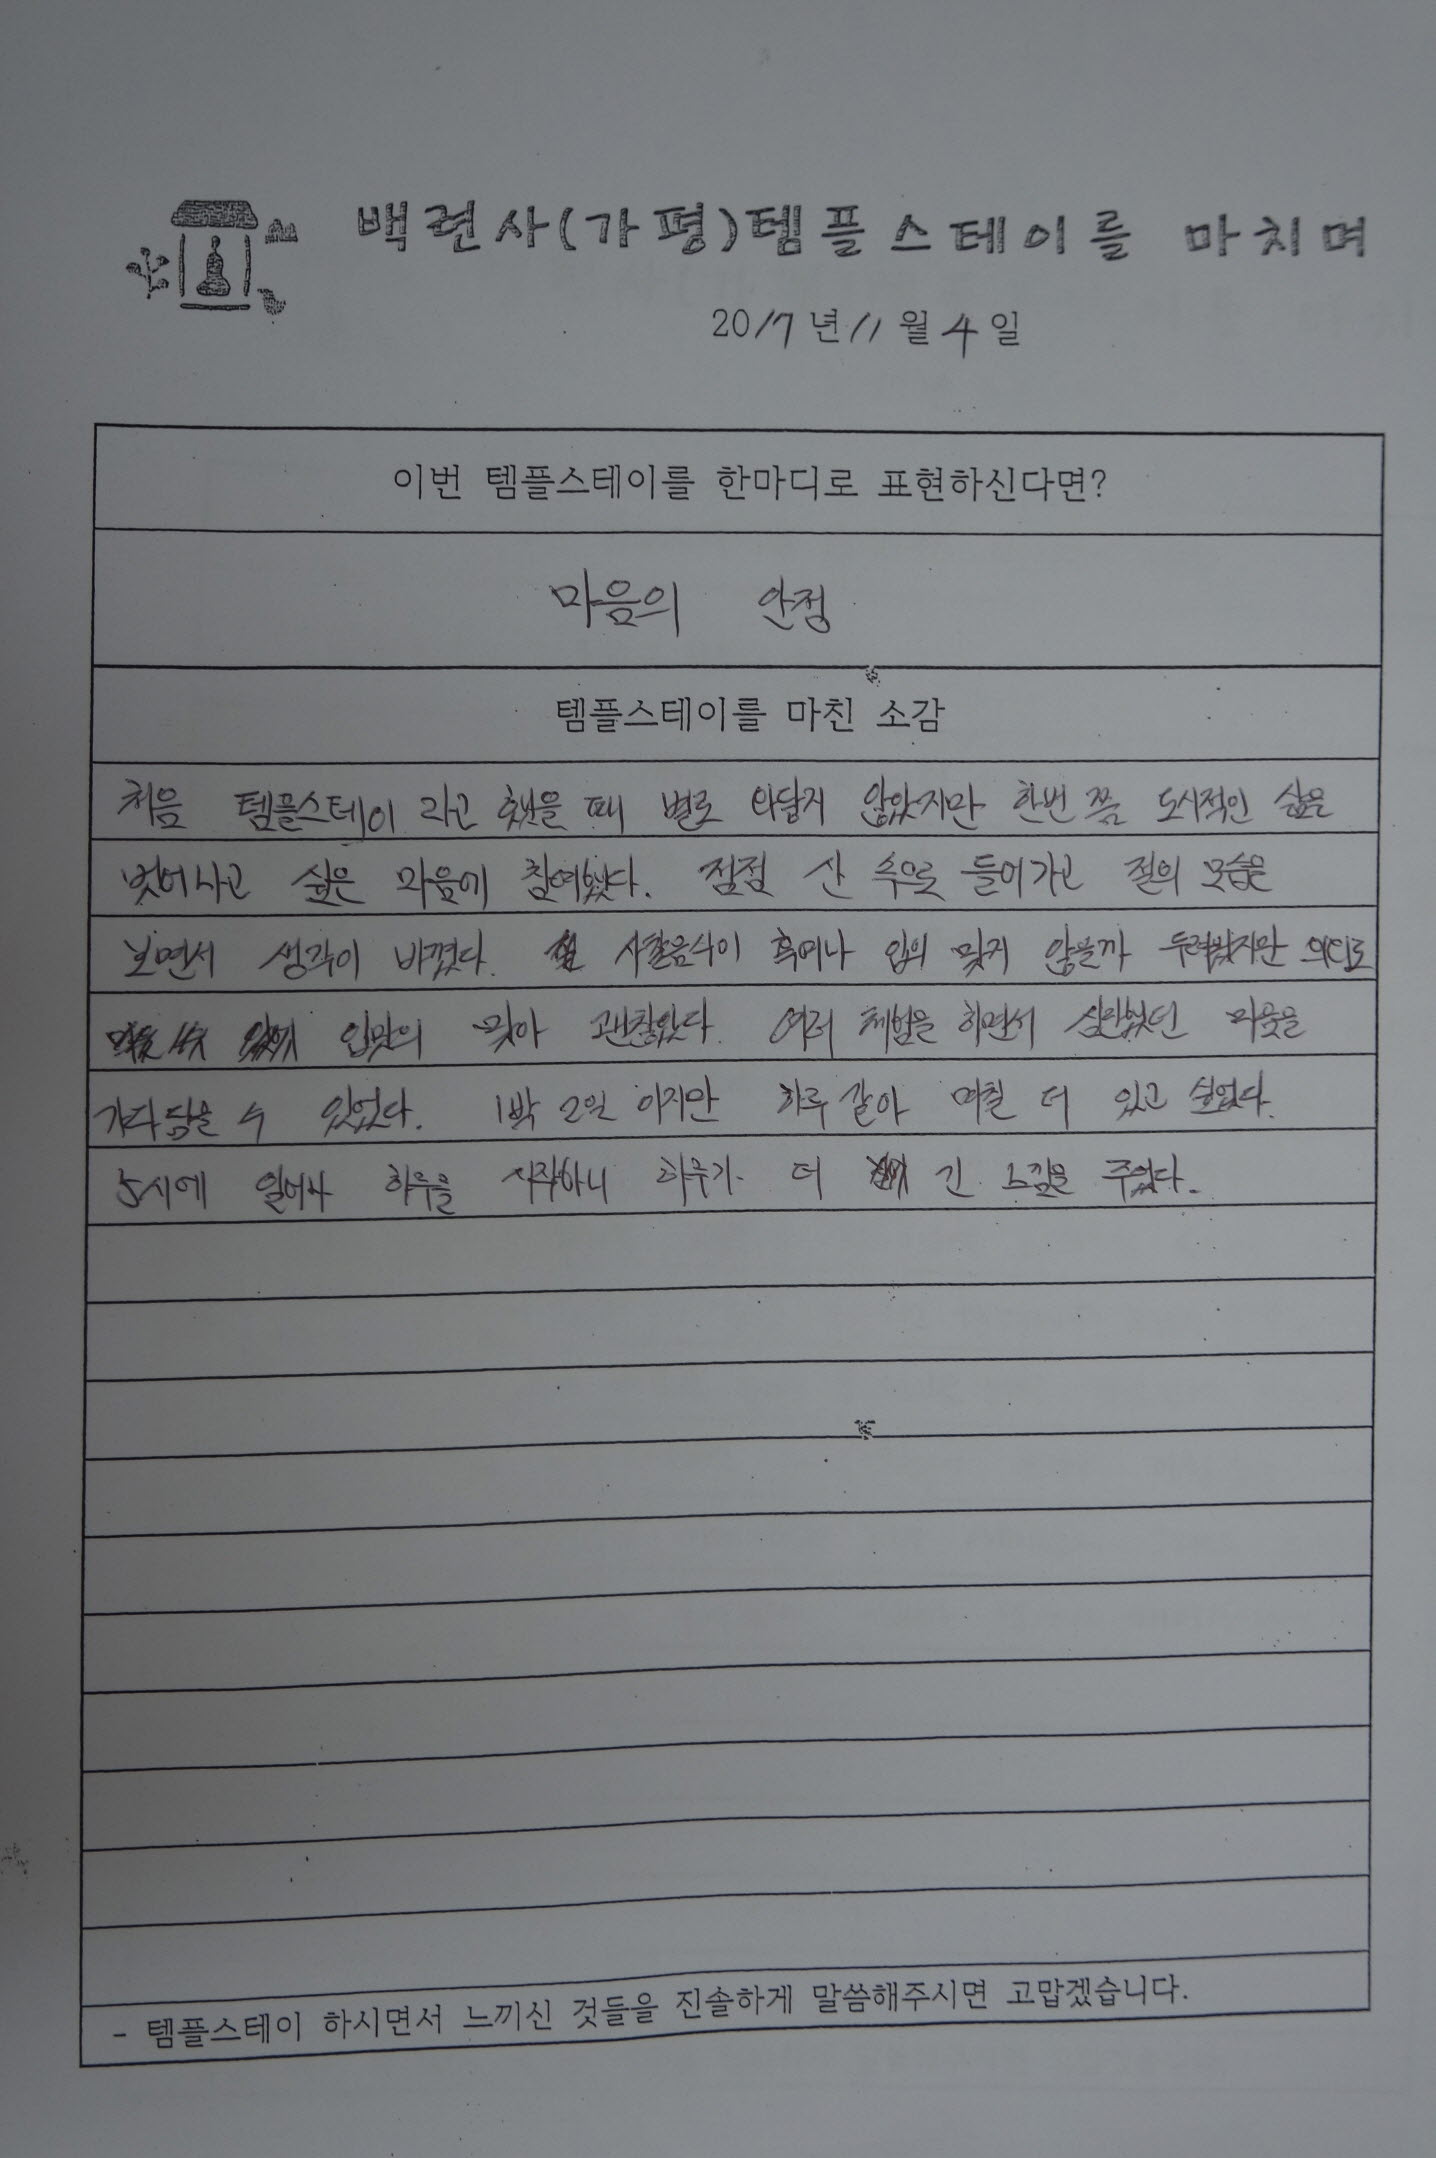 백련사(가평)템플스테이를 마치며
2017년 11월 4일
이번 템플스테이를 한마디로 표현하신다면?
마음의 안정
템플스테이를 마친 소감
처음 템플스테이 라고 했을 때 별로 와닿지 않았지만 한번 쯤 도시적인 삶은
벗어나고 싶은 마음에 참여했다. 점점 산 속으로 들어가고 절의 모습을
보면서 생각이 바꼈다. 사찰음식이 혹여나 입의 맞지 않을까 두려웠지만 의외로
입맛의 맞아 괜찮았다. 여러 체험을 하면서 심란했던 마음을
가다듬을 수 있었다. 1박 2일 이지만 하루 같아 며칠 더 있고 싶었다.
5시에 일어나 하루를 시작하니 하루가 더 긴 느낌을 주었다.
- 템플스테이 하시면서 느끼신 것들을 진솔하게 말씀해주시면 고맙겠습니다.